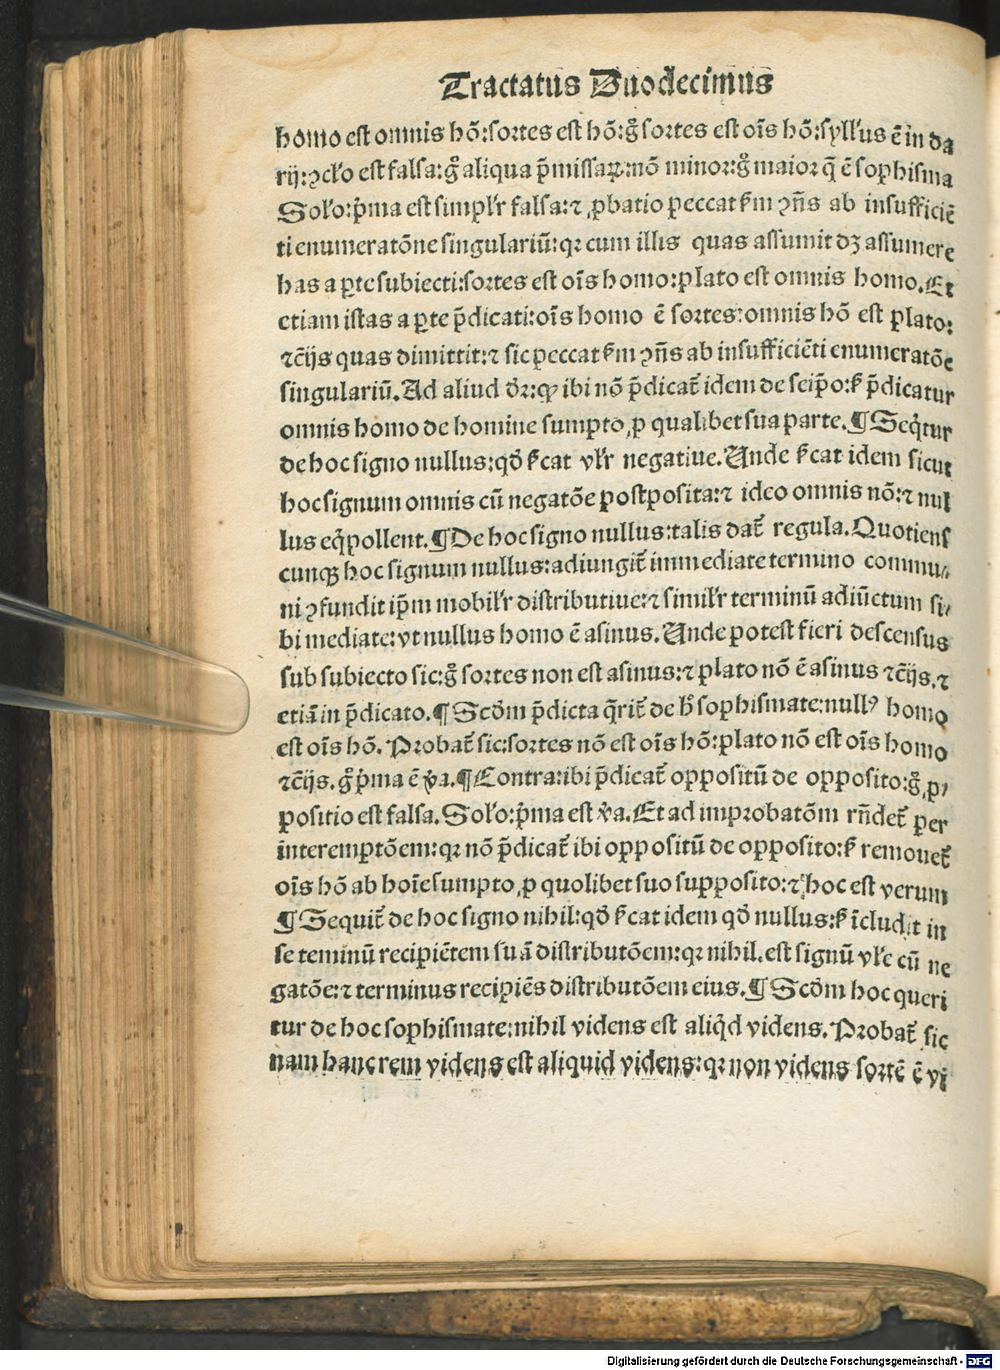 Tractatus Duodecimus
homo est omnis hō:sortes est hō:gͦ sortes est oīs hō:syll'us ē in da
rij:ꝯcło est falsa:gͦ aliqua p̄missaꝝ:nō minor:gͦ maior q̄ ē sophisma
Soło:p̄ma est simpłr falsa:⁊ ꝓbatio peccat ẜm ꝯn̄s ab insufficiē
ti enumeratōne singulariū:qꝛ cum illis quas assumit dꝫ assumere
has a ꝑte subiecti:sortes est oīs homo:plato est omnis homo.Et
etiam istas a ꝑte p̄dicati:oīs homo ē sortes:omnis hō est plato:
⁊c̄ijs quas dimittit:⁊ sic peccat ẜm ꝯn̄s ab insufficiēti enumeratōe
singulariū.Ad aliud dr̄:ꝙ ibi nō p̄dicat̄ idem de seip̄o:ẜ p̄dicatur
omnis homo de homine sumpto ꝓ qualibet sua parte.¶Seq̄tur
de hoc signo nullus:qd̄ ẜcat vłr negatiue.Unde ẜcat idem sicut
hoc signum omnis cū negatōe postposita:⁊ ideo omnis nō:⁊ nul
lus eq̄pollent.¶De hoc signo nullus:talis dat̄ regula.Quotiens
cunqꝫ hoc signum nullus:adiungit̄ immediate termino commu⸗
ni ꝯfundit ip̄m mobiłr distributiue:⁊ similr̄ terminū adiūctum si⸗
bi mediate:vt nullus homo ē asinus.Unde potest fieri descensus
sub subiecto sic:gͦ sortes non est asinus:⁊ plato nō ē asinus ⁊c̄ijs.⁊
etiā in p̄dicato.¶Scd̄m p̄dicta q̄rit̄ de h̄ sophismate:nullꝰ homo
est oīs hō.Probat̄ sic:sortes nō est oīs hō:plato nō est oīs homo
⁊c̄ijs.gͦ p̄ma ē v̄a.¶Contra:ibi p̄dicat̄ oppositū de opposito:gͦ ꝓ⸗
positio est falsa.Soło:p̄ma est v̄a.Et ad improbatōm rn̄det̄ per
interemptōem:qꝛ nō p̄dicat̄ ibi oppositū de opposito:ẜ remouet̄
oīs hō ab hoīe sumpto ꝓ quolibet suo supposito:⁊ hoc est verum
¶Sequit̄ de hoc signo nihil:qd̄ ẜcat idem qd̄ nullus:ẜ īcludit in
se teminū recipiētem suā distributōem:qꝛ nihil.est signū vłe cū ne
gatōe:⁊ terminus recipiēs distributōem eius.¶Scd̄m hoc queri
tur de hoc sophismate:nihil videns est aliqd̄ videns.Probat̄ sic
nam hanc rem videns est aliquid videns:qꝛ non videns sortē ē vi
Digitalisierung gefördert durch die Deutsche Forschungsgemeinschaft - DFG